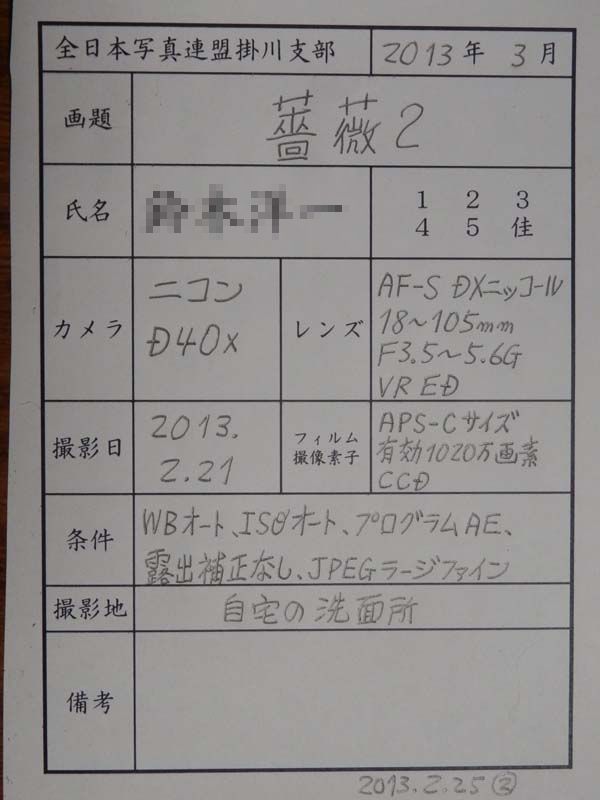 全日本写真連盟掛川支部 2013年 3月
画題 薔薇2
氏名
1 2 3
4 5 佳
カメラ
ニコン
D40x
レンズ
AF-S DXニッコール
18~105mm
F3.5~5.6G
VR ED
撮影日
2013.
2.21
フィルム
撮像素子
APS-Cサイズ
有効1020万画素
CCD
条件
WBオート、ISOオート、プログラムAE、
露出補正なし、JPEGラージファイン
撮影地 自宅の洗面所
備考
2013.2.25 ②